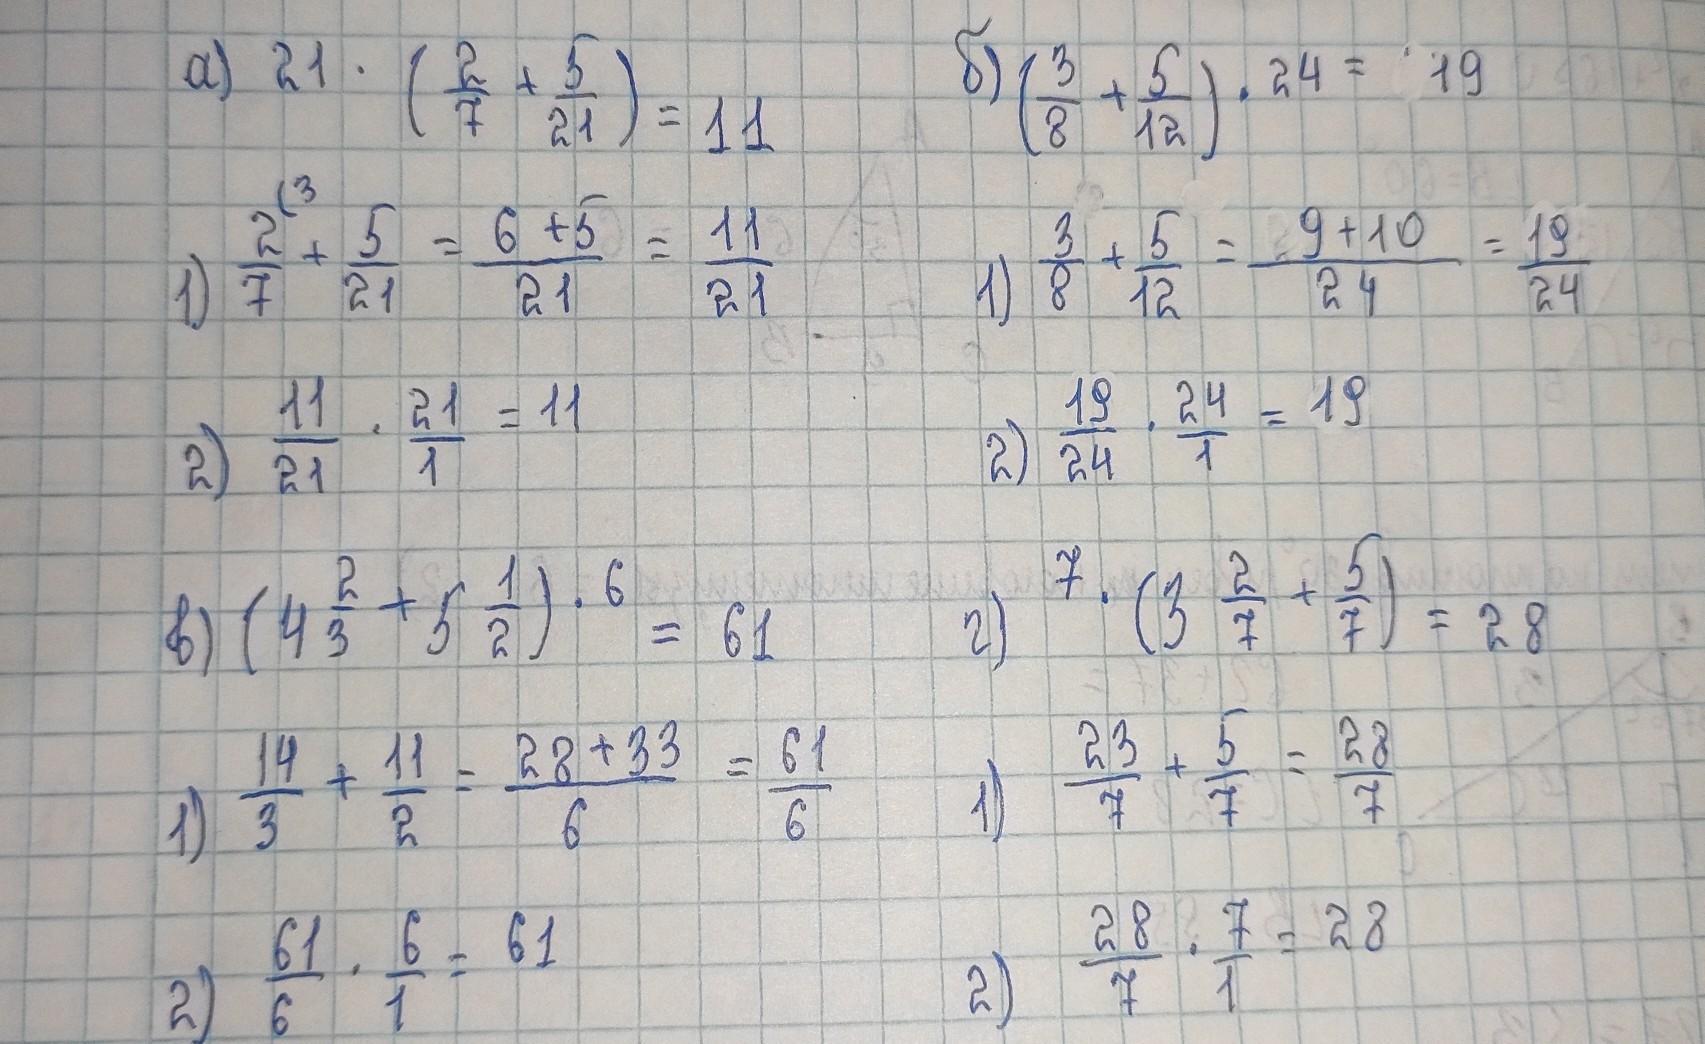 а) 21 · (2/7 + 5/21) = 11
1) 2/7 (3 + 5/21 = (6+5)/21 = 11/21
2) 11/21 · 21/1 = 11
б) (3/8 + 5/12) · 24 = 19
1) 3/8 + 5/12 = (9+10)/24 = 19/24
2) 19/24 · 24/1 = 19
в) (4 2/3 + 5 1/2) · 6 = 61
1) 14/3 + 11/2 = (28+33)/6 = 61/6
2) 61/6 · 6/1 = 61
г) 7 · (3 2/7 + 5/7) = 28
1) 23/7 + 5/7 = 28/7
2) 28/7 · 7/1 = 28